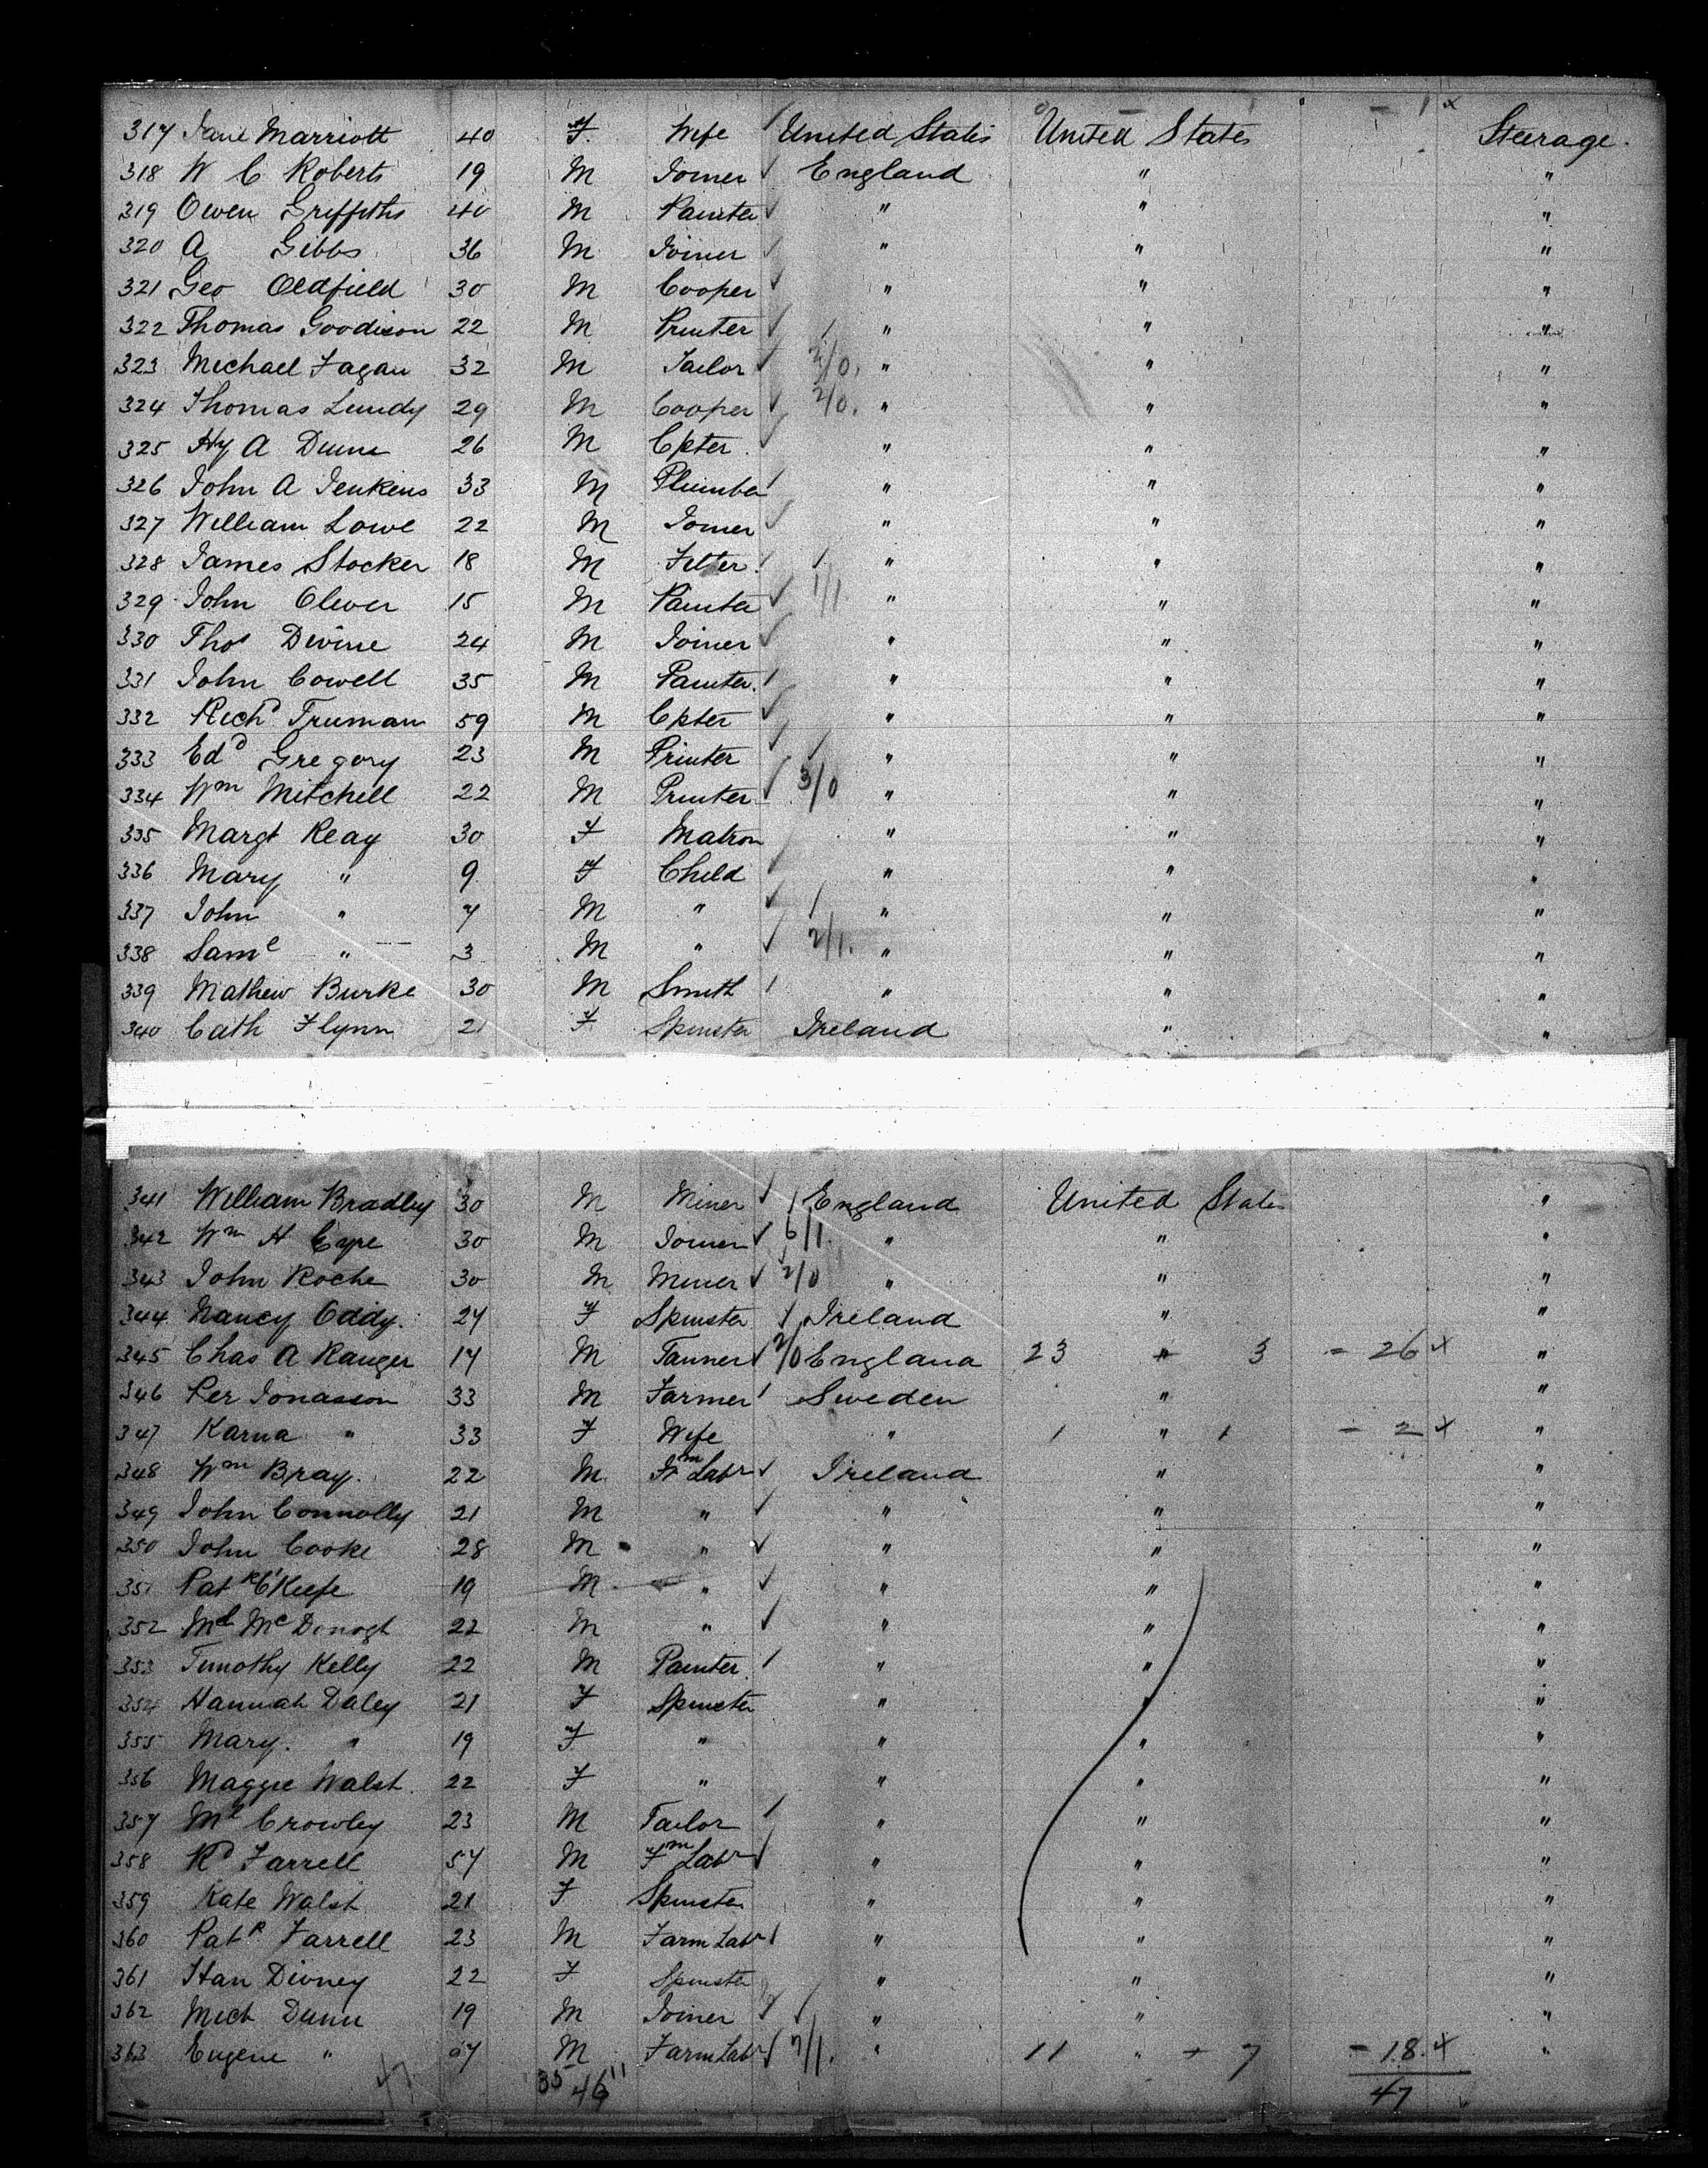 - 1 x
317 Jane Marriott 40 F. Wife United States United States Steerage.
318 W C Roberts 19 M Joiner England " "
319 Owen Griffiths 40 M Painter " " "
320 A Gibbs 36 M Joiner " " "
321 Geo Oldfield 30 M Cooper " " "
322 Thomas Goodison 22 M Printer " " "
323 Michael Fagan 32 M Tailor 2/0. " " "
324 Thomas Lundy 29 M Cooper 2/0. " " "
325 Hy A Dunn 26 M Cpter " " "
326 John A Jenkins 33 M Plumber " " "
327 William Lowe 22 M Joiner " " "
328 James Stocker 18 M Fitter " " "
329 John Oliver 15 M Painter 1/1 " " "
330 Thos Divine 24 M Joiner " " "
331 John Cowell 35 M Painter. " " "
332 Richd Truman 59 M Cpter " " "
333 Edd Gregory 23 M Printer " " "
334 Wm Mitchell 22 M Printer 3/0 " " "
335 Margt Reay 30 F Matron " " "
336 Mary " 9 F Child " " "
337 John " 7 M " " " "
338 Saml " 3 M " 2/1. " " "
339 Mathew Burke 30 M Smith " " "
340 Cath Flynn 21 F Spinster Ireland " "
341 William Bradley 30 M Miner England United States "
342 Wm H Eyre 30 M Joiner 6/1 " " "
343 John Roche 30 M Miner 2/0 " " "
344 Nancy Oddy. 27 F Spinster Ireland " "
345 Chas A Ranger 17 M Tanner 2/0 England 23 " 3 = 26 x "
346 Per Jonasson 33 M Farmer Sweden " "
347 Karna " 33 F Wife " 1 " 1 - 2 x "
348 Wm Bray. 22 M Fm Labr Ireland " "
349 John Connolly 21 M " " " "
350 John Cooke 28 M " " " "
351 Patk O'Keefe 19 M " " " "
352 Ml McDonogh 22 M " " " "
353 Timothy Kelly 22 M Painter " " "
354 Hannah Daley 21 F Spinster " " "
355 Mary. " 19 F " " " "
356 Maggie Walsh 22 F " " " "
357 Ml Crowley 23 M Tailor " " "
358 Rd Farrell 57 M Fm Labr " " "
359 Kate Walsh 21 F Spinster " " "
360 Patk Farrell 23 M Farm Labr " " "
361 Han Divney 22 F Spinster " " "
362 Mich Dunn 19 M Joiner " " "
363 Eugene " M Farm Labr 7/1. " 11 " + 7 - 18. x "
47 35 46 11 47